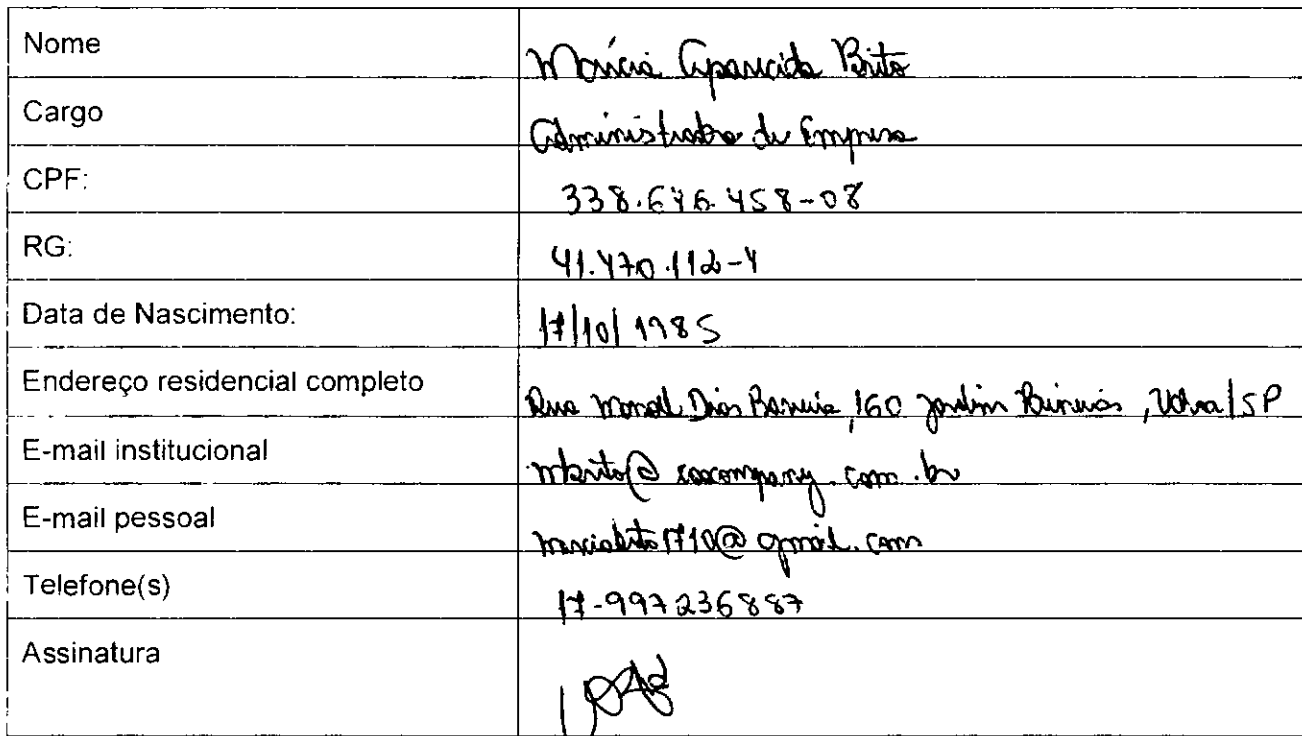 Nome Márcia Aparecida Brito
Cargo Administradora de Empresa
CPF: 338.646.458-08
RG: 41.470.112-4
Data de Nascimento: 17/10/1985
Endereço residencial completo Rua Dias 160 Jardim , /SP
E-mail institucional .com.br
E-mail pessoal marciabrito1710@gmail.com
Telefone(s) 17-997236887
Assinatura